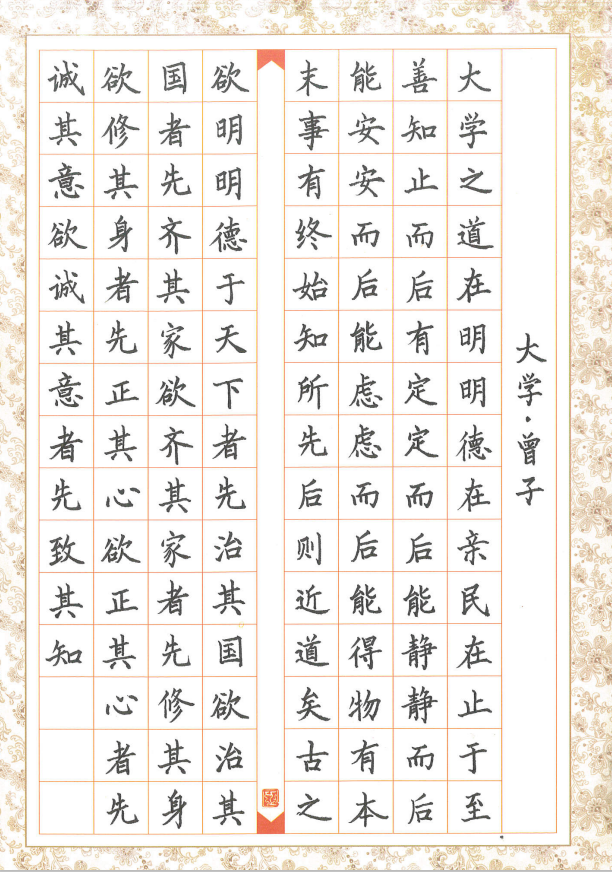 大学·曾子
大学之道在明明德在亲民在止于至
善知止而后有定定而后能静静而后
能安安而后能虑虑而后能得物有本
末事有终始知所先后则近道矣古之
欲明明德于天下者先治其国欲治其
国者先齐其家欲齐其家者先修其身
欲修其身者先正其心欲正其心者先
诚其意欲诚其意者先致其知